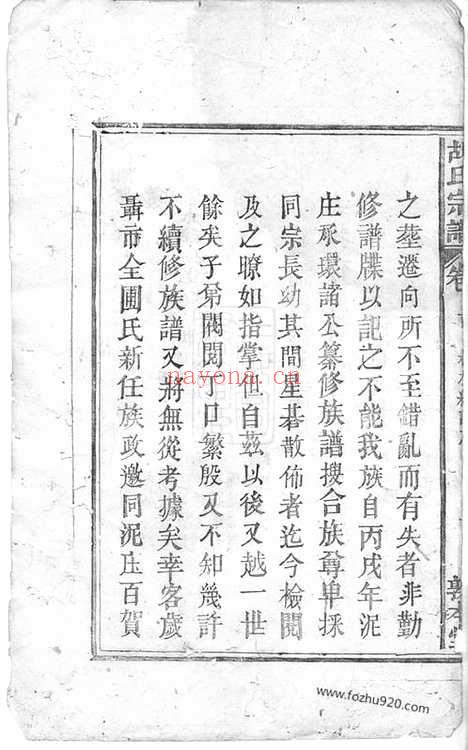 胡氏宗譜
卷
之塟遷向所不至錯亂而有失者非勤
修譜牒以記之不能我族自丙戌年泥
庄承環諸公纂修族譜搜合族尊卑採
同宗長幼其間星碁散佈者迄今檢閱
及之瞭如指掌但自茲以後又越一世
餘矣子弟閥閱丁口繁殷又不知幾許
不續修族譜又將無從考據矣幸客歲
聶市全圃氏新任族政邀同泥庄百賀
nayona.cn
www.fozhu920.com